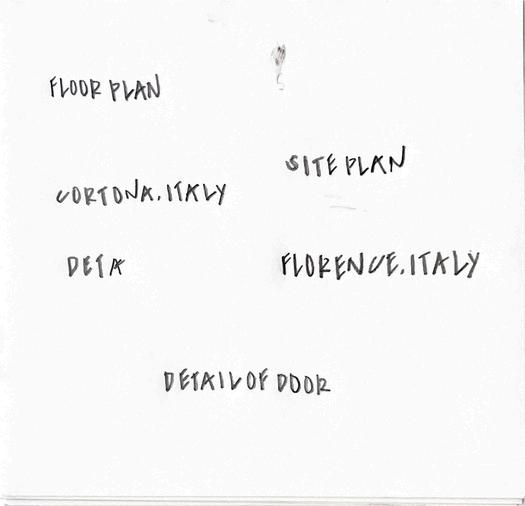 FLOOR PLAN
SITE PLAN
CORTONA, ITALY
DETA
FLORENCE, ITALY
DETAIL OF DOOR